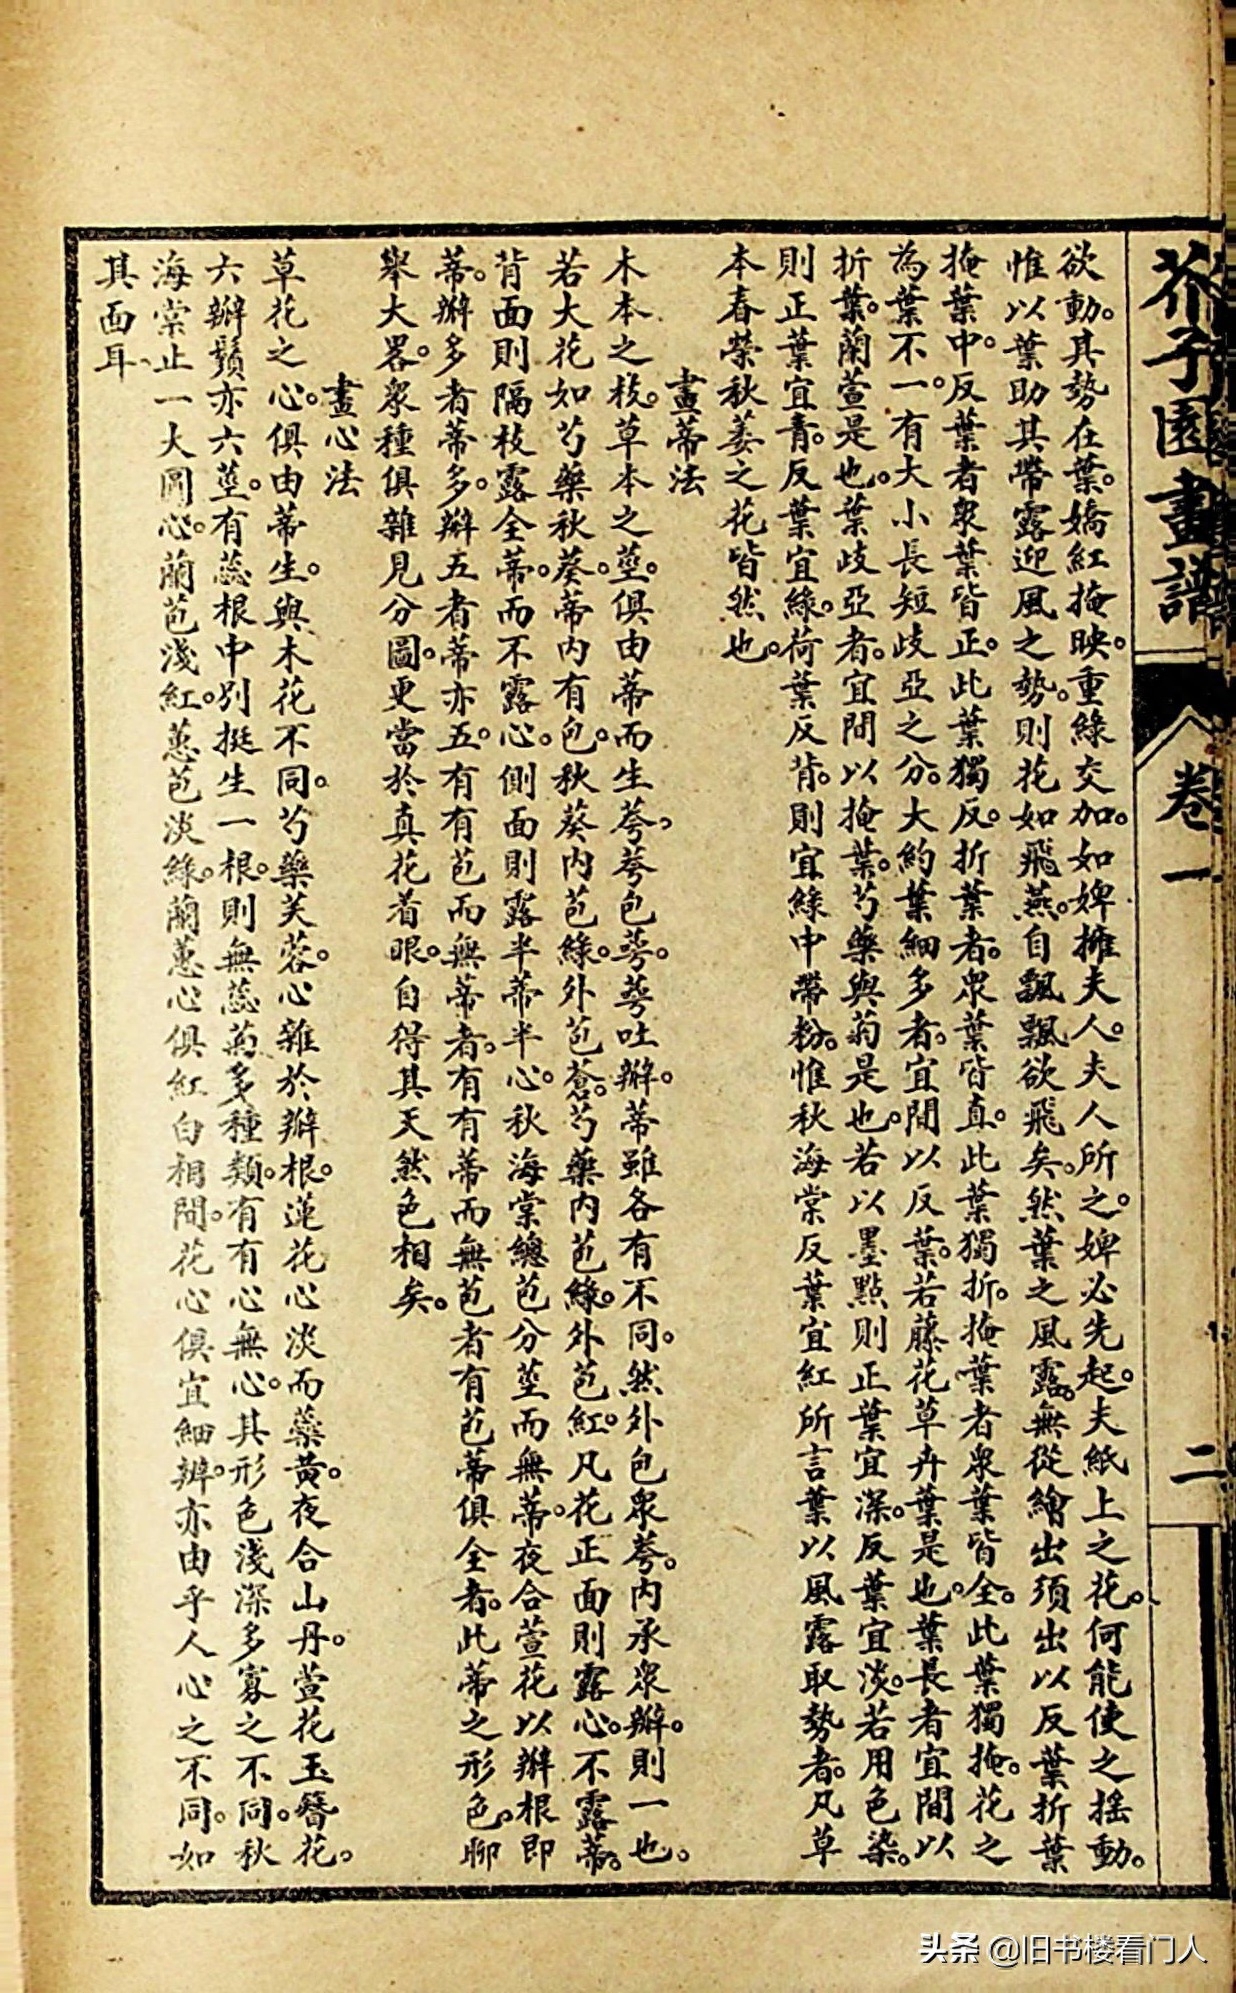 芥子園畫譜
卷一
二
欲動。其勢在葉。嬌紅掩映。重綠交加。如婢擁夫人。夫人所之。婢必先起。夫紙上之花。何能使之搖動。
惟以葉助其帶露迎風之勢。則花如飛燕。自飄飄欲飛矣。然葉之風露。無從繪出。須出以反葉折葉
掩葉中。反葉者。眾葉皆正。此葉獨反。折葉者。眾葉皆直。此葉獨折。掩葉者。眾葉皆全。此葉獨掩。花之
為葉不一。有大小長短歧亞之分。大約葉細多者。宜間以反葉。若藤花草卉葉是也。葉長者宜間以
折葉。蘭萱是也。葉歧亞者。宜間以掩葉。芍藥與菊是也。若以墨點則正葉宜深。反葉宜淡。若用色染。
則正葉宜青。反葉宜綠。荷葉反背。則宜綠中帶粉。惟秋海棠反葉宜紅所言葉以風露取勢者。凡草
本春榮秋萎之花皆然也。
畫蒂法
木本之枝。草本之莖。俱由蒂而生萼。萼包萼。萼吐瓣。蒂雖各有不同。然外包眾萼。內承眾瓣。則一也。
若大花如芍藥秋葵。蒂內有包。秋葵內苞綠。外苞蒼。芍藥內苞綠。外苞紅。凡花正面則露心。不露蒂。
背面則隔枝露全蒂。而不露心。側面則露半蒂半心。秋海棠總苞分莖而無蒂。夜合萱花以瓣根即
蒂。瓣多者蒂多。瓣五者蒂亦五。有有苞而無蒂者。有有蒂而無苞者有苞蒂俱全者。此蒂之形色。聊
舉大畧。眾種俱雜見分圖。更當於真花着眼。自得其天然色相矣。
畫心法
草花之心。俱由蒂生。與木花不同。芍藥芙蓉。心雜於瓣根。蓮花心淡而蘂黃。夜合山丹。萱花玉簪花。
六瓣鬚亦六莖。有蕊根中別挺生一根。則無蕊菊多種類。有有心無心。其形色淺深多寡之不同。秋
海棠止一大圓心。蘭苞淺紅。蕙苞淡綠。蘭蕙心俱紅白相間。花心俱宜細辨。亦由乎人心之不同。如
其面耳、
头条 @旧书楼看门人